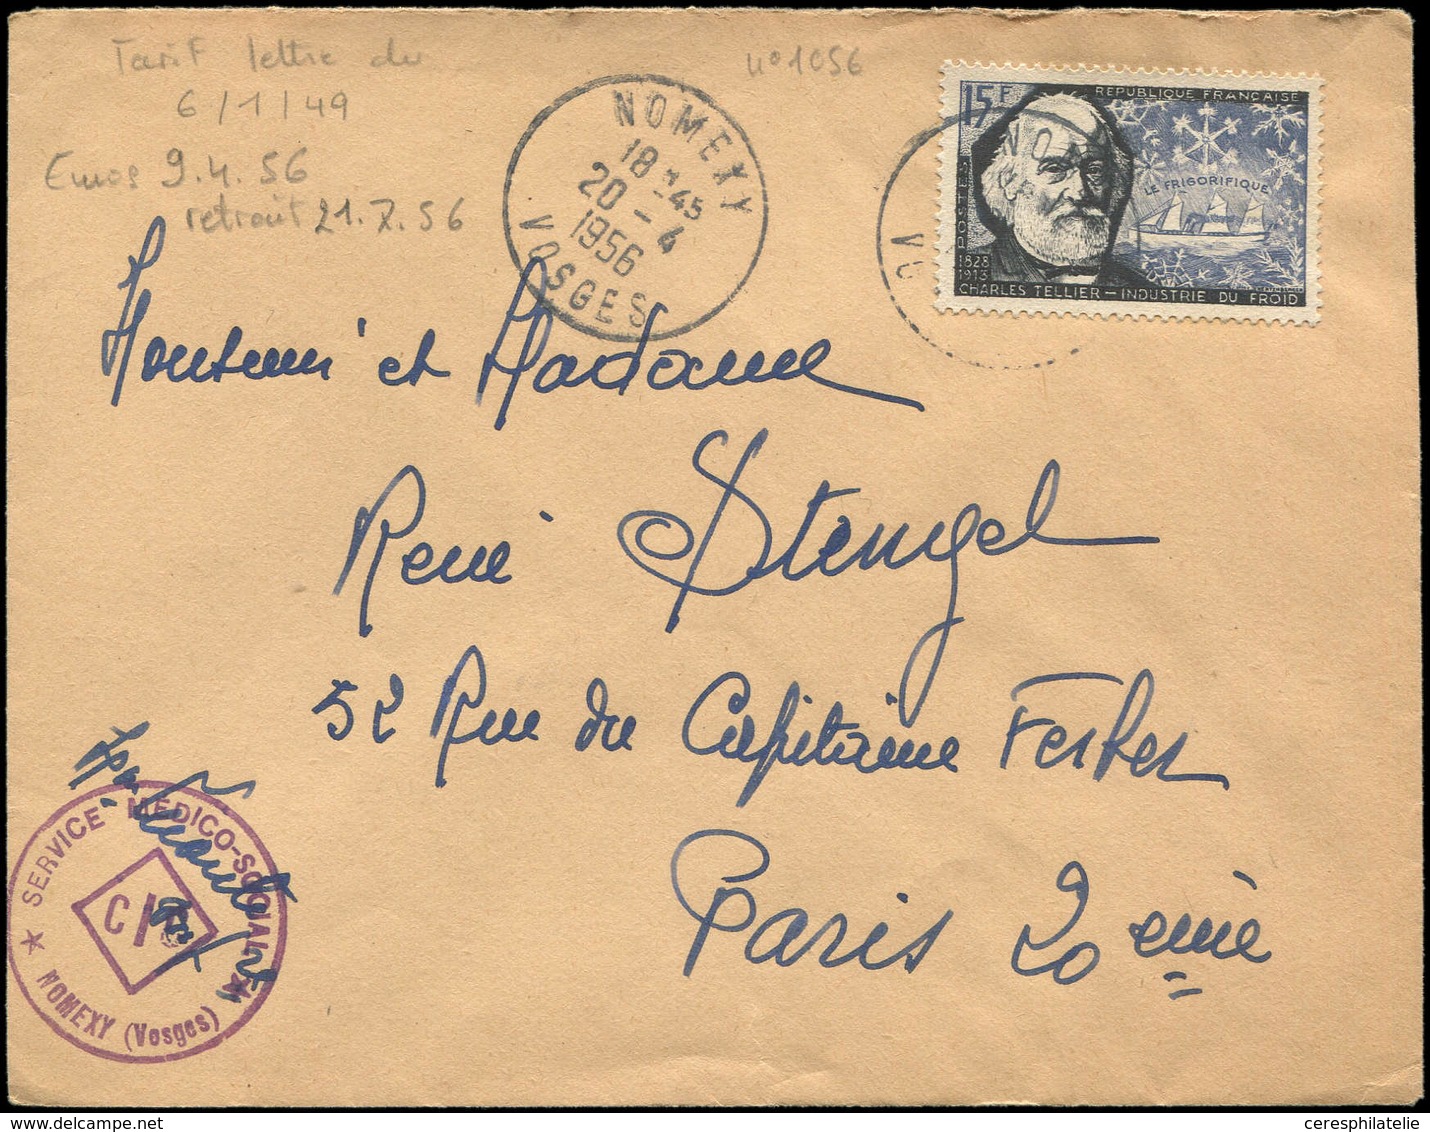 Tarif lettre du
6/1/49
n°1056
Emis 9.4.56
retrait 21.7.56
NOMEXY
18 H 45
20 - 4
1956
VOSGES
15F
REPUBLIQUE FRANÇAISE
POSTES
LE FRIGORIFIQUE
1828
1913
CHARLES TELLIER — INDUSTRIE DU FROID
NOM
VO
Monsieur et Madame
René Stengel
52 Rue du Capitaine Ferber
Paris 20 ème
SERVICE MEDICO-SOCIAL
NOMEXY (Vosges)
ceresphilatelie